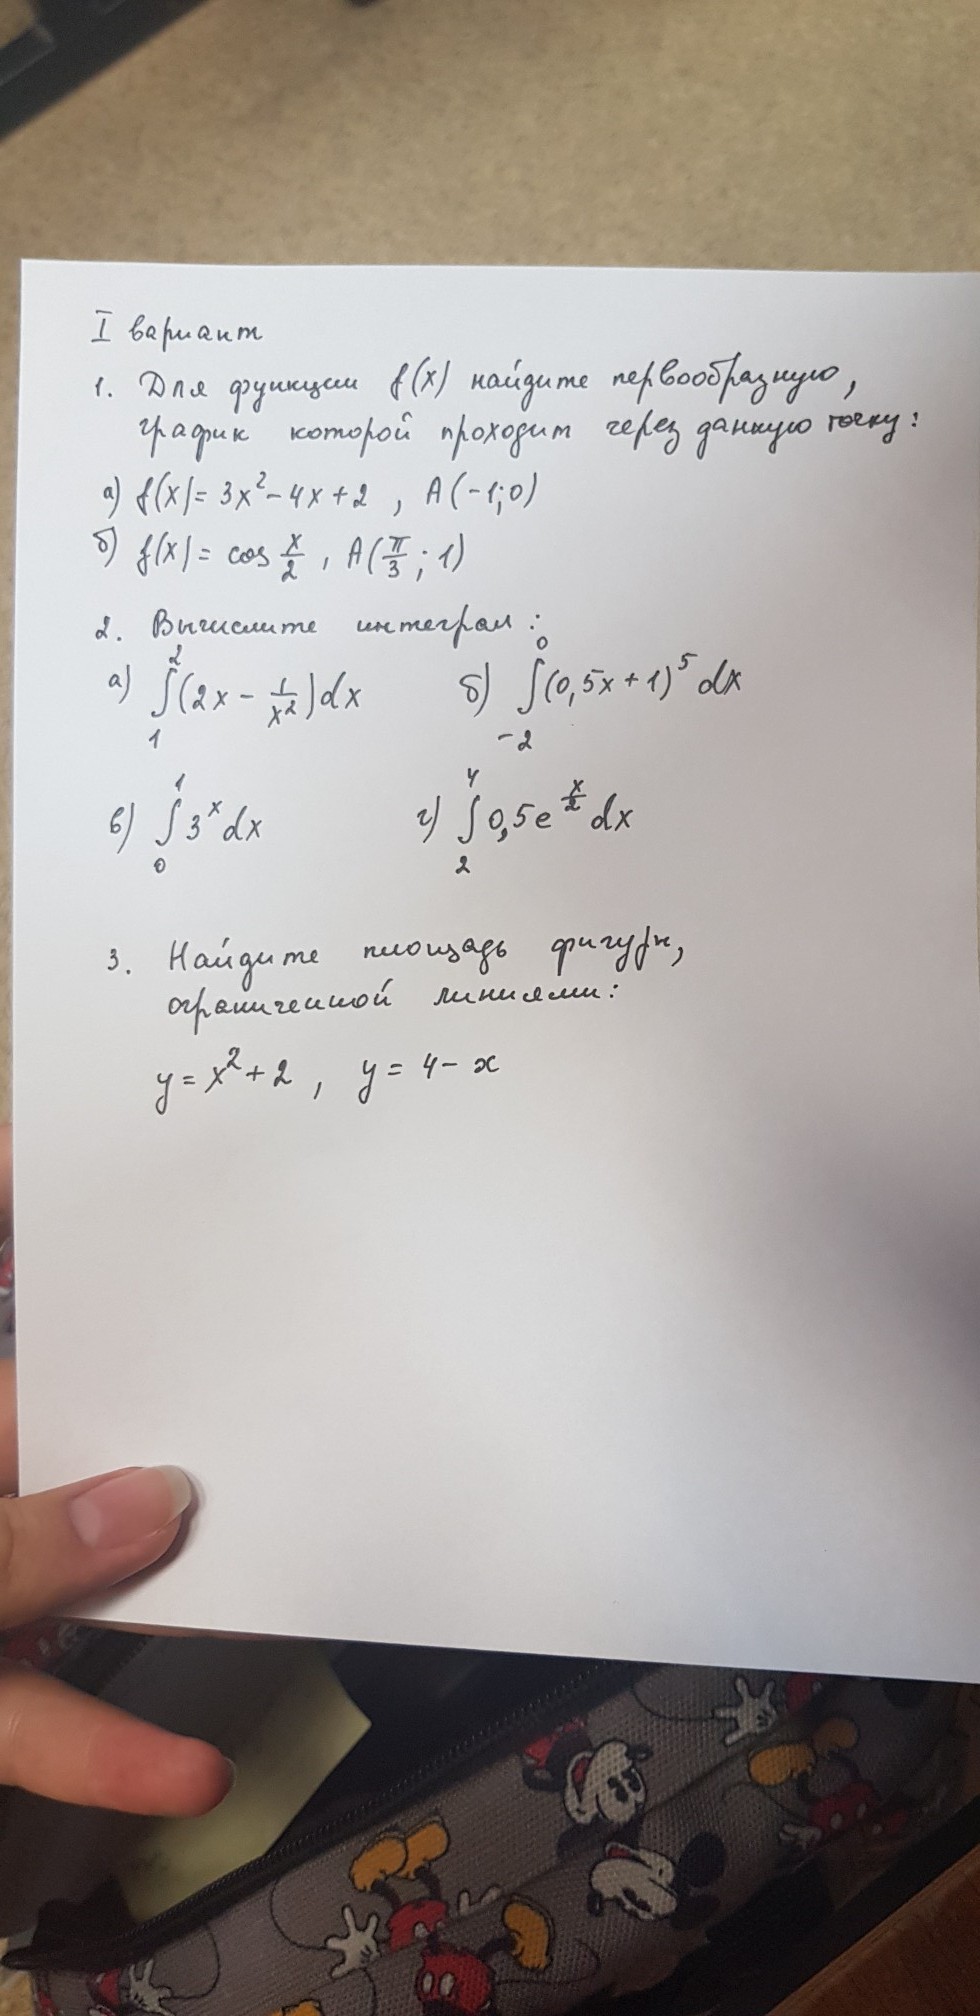 I вариант
1. Для функции f(x) найдите первообразную,
график которой проходит через данную точку:
а) f(x) = 3x² - 4x + 2 , A(-1;0)
б) f(x) = cos x/2 , A(π/3 ; 1)
2. Вычислите интеграл :
а) ∫₁² (2x - 1/x²)dx б) ∫₋₂⁰ (0,5x + 1)⁵ dx
в) ∫₀¹ 3ˣ dx г) ∫₂⁴ 0,5e^(x/2) dx
3. Найдите площадь фигуры,
ограниченной линиями:
y = x² + 2 , y = 4 - x